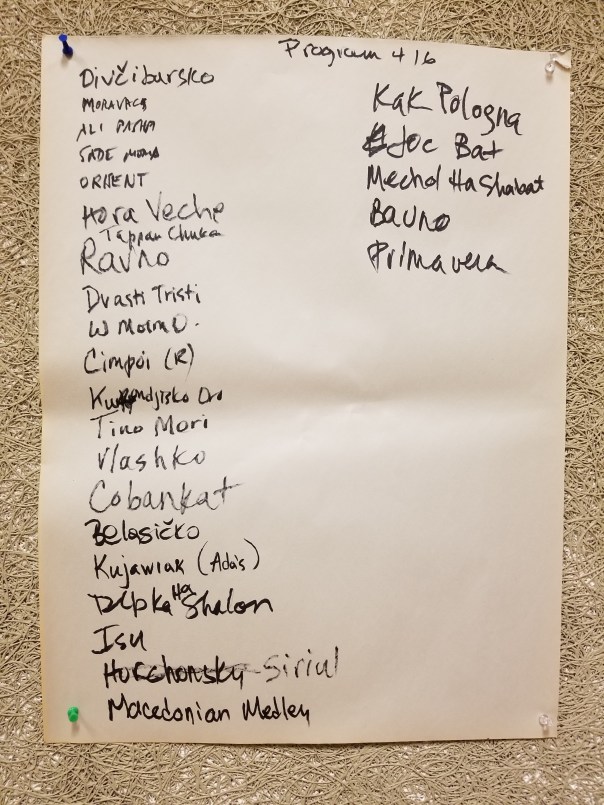 Program 4 16
Divčibarsko
MORAVAC
ALI PASHA
SADE
ORIENT
Hora Veche
Tappan Chuka
Ravno
Dvasti Tristi
W Moim O.
Cimpoi (R)
Oro
Tino Mori
Vlashko
Cobankat
Belasičko
Kujawiak (Ada's)
Depka Ha Shalom
Isu
Horehonsky Siriul
Macedonian Medley
Kak Pologna
Joc Bat
Mechol HaShabat
Bavno
Primavera